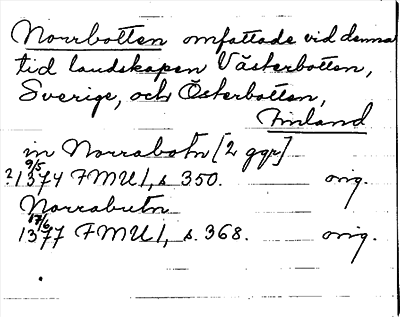 Norrbotten omfattade vid denna
tid landskapen Västerbotten,
Sverige, och Österbotten,
Finland
in Norrabotn [2 ggr]
9/5
?1374 FMU I, s. 350. orig.
Norrabutn
17/6
1377 FMU I, s. 368. orig.